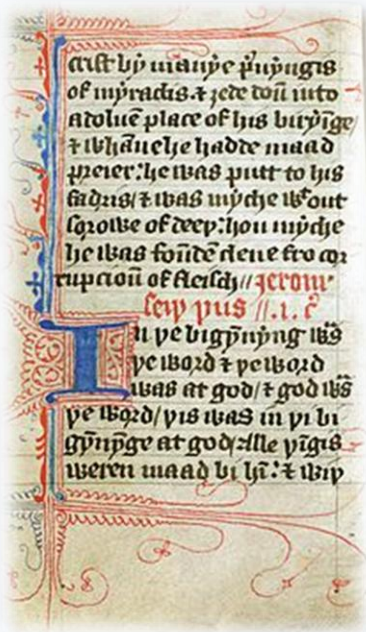 crist bẏ manẏe p̉uẏngis
of mẏraclis. ⁊ ȝede doū into
a doluē place of his birẏīge/
⁊ whāne he hadde maad
preier: he was putt to his
fadris/ ⁊ was mẏche wᵗout
sorowe of deeþ: hou mẏche
he was foūdē clene fro cor
rupcioū of fleisch // Jerom
seiþ þus //.i. c̉
In þe bigẏnẏng wᵃˢ
þe word ⁊ þe word
was at god/ ⁊ god wᵃˢ
þe word/ þis was in þi bi
gẏnẏge at god/ alle þīgis
weren maad bi hī: ⁊ wiþ